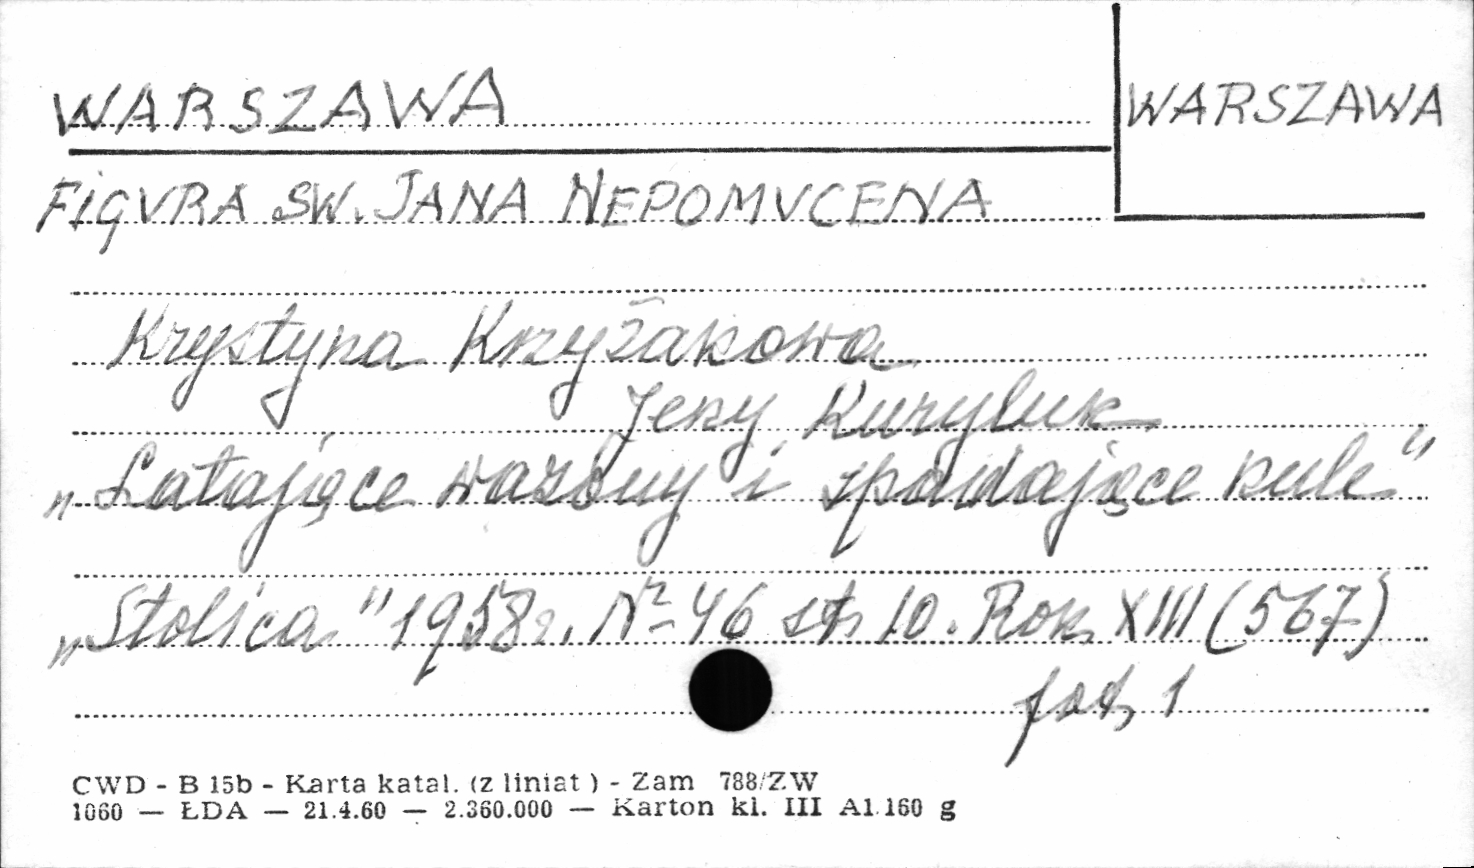 WARSZAWA
WARSZAWA
FIGVRA SW. JANA NEPOMVCENA
Krystyna Krzyżakowa
Jerzy Kuryluk
„Latające wazony i spadające kule”
„Stolica” 1958r. Nr 46 str 10. Rok XIII (567)
fot, 1
CWD - B 15b - Karta katal. (z liniat ) - Zam 788/ZW
1060 — ŁDA — 21.4.60 — 2.360.000 — Karton kl. III A1.160 g